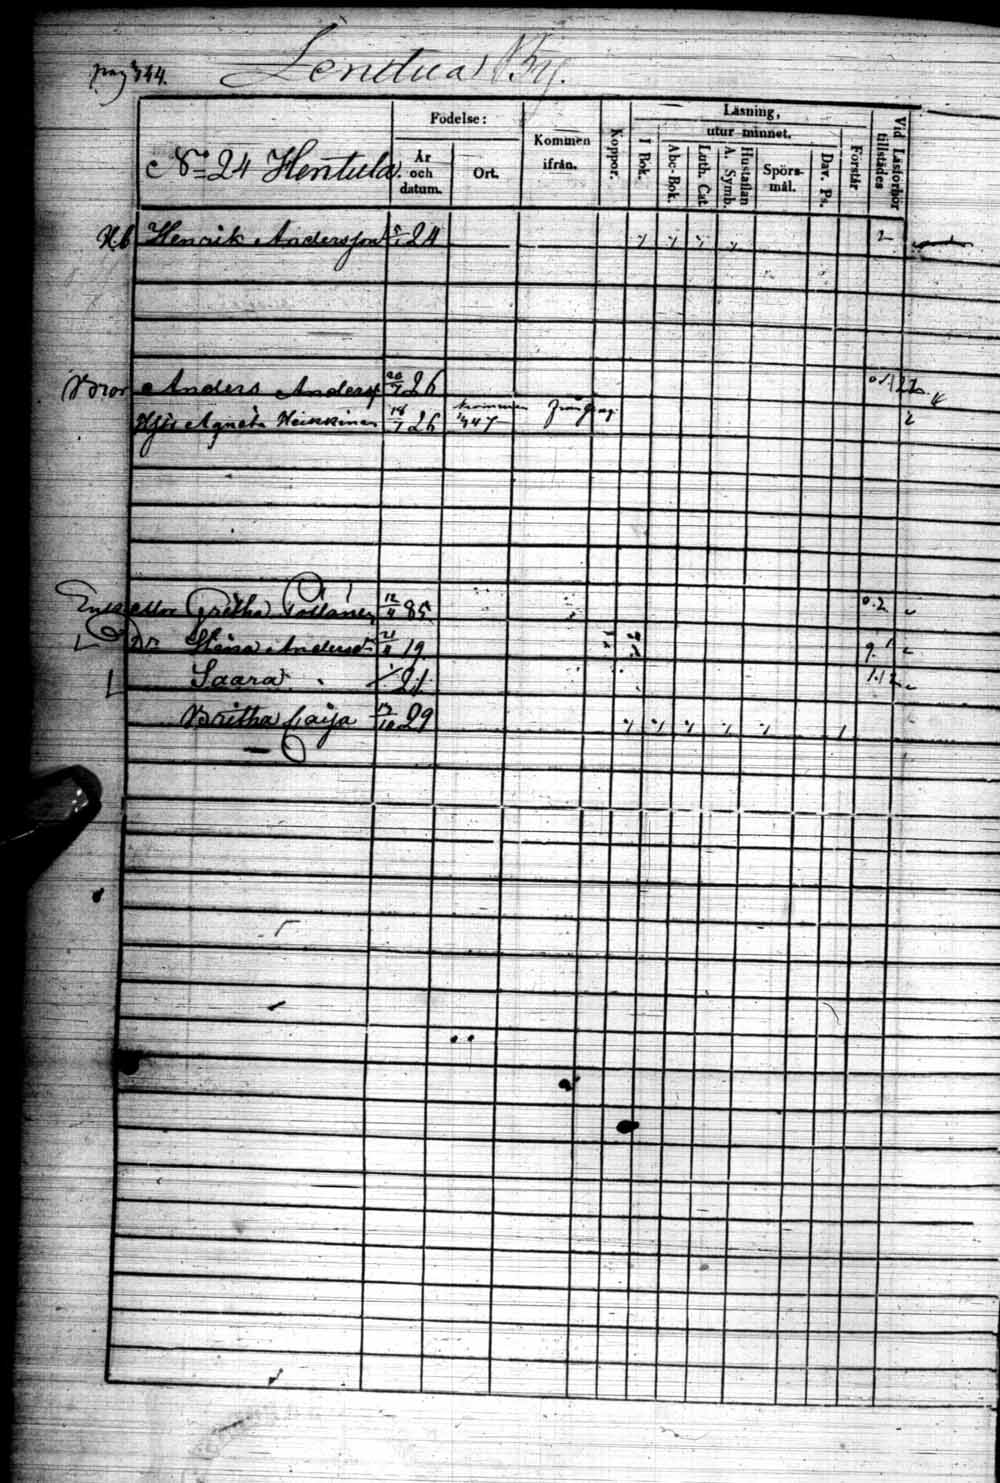 pag 344.
Lentua By.
No 24 Hentula.
Födelse:
År och datum.
Ort.
Kommen ifrån.
Koppor.
Läsning,
utur minnet.
I Bok.
Abc-Bok.
Luth. Cat.
Hustaflan A. Symb.
Spörsmål.
Dav. Ps.
Förstår
Vid Läsförhör tillstädes
Henrik Andersson 24
Bror Anders Anderss 20/7 26
Agneta Heikkinen 18/7 26 kommen 447
Gretha 12/4 85
Dr Stina Andersdr 21/4 19
Saara 21
Britha Caija 29